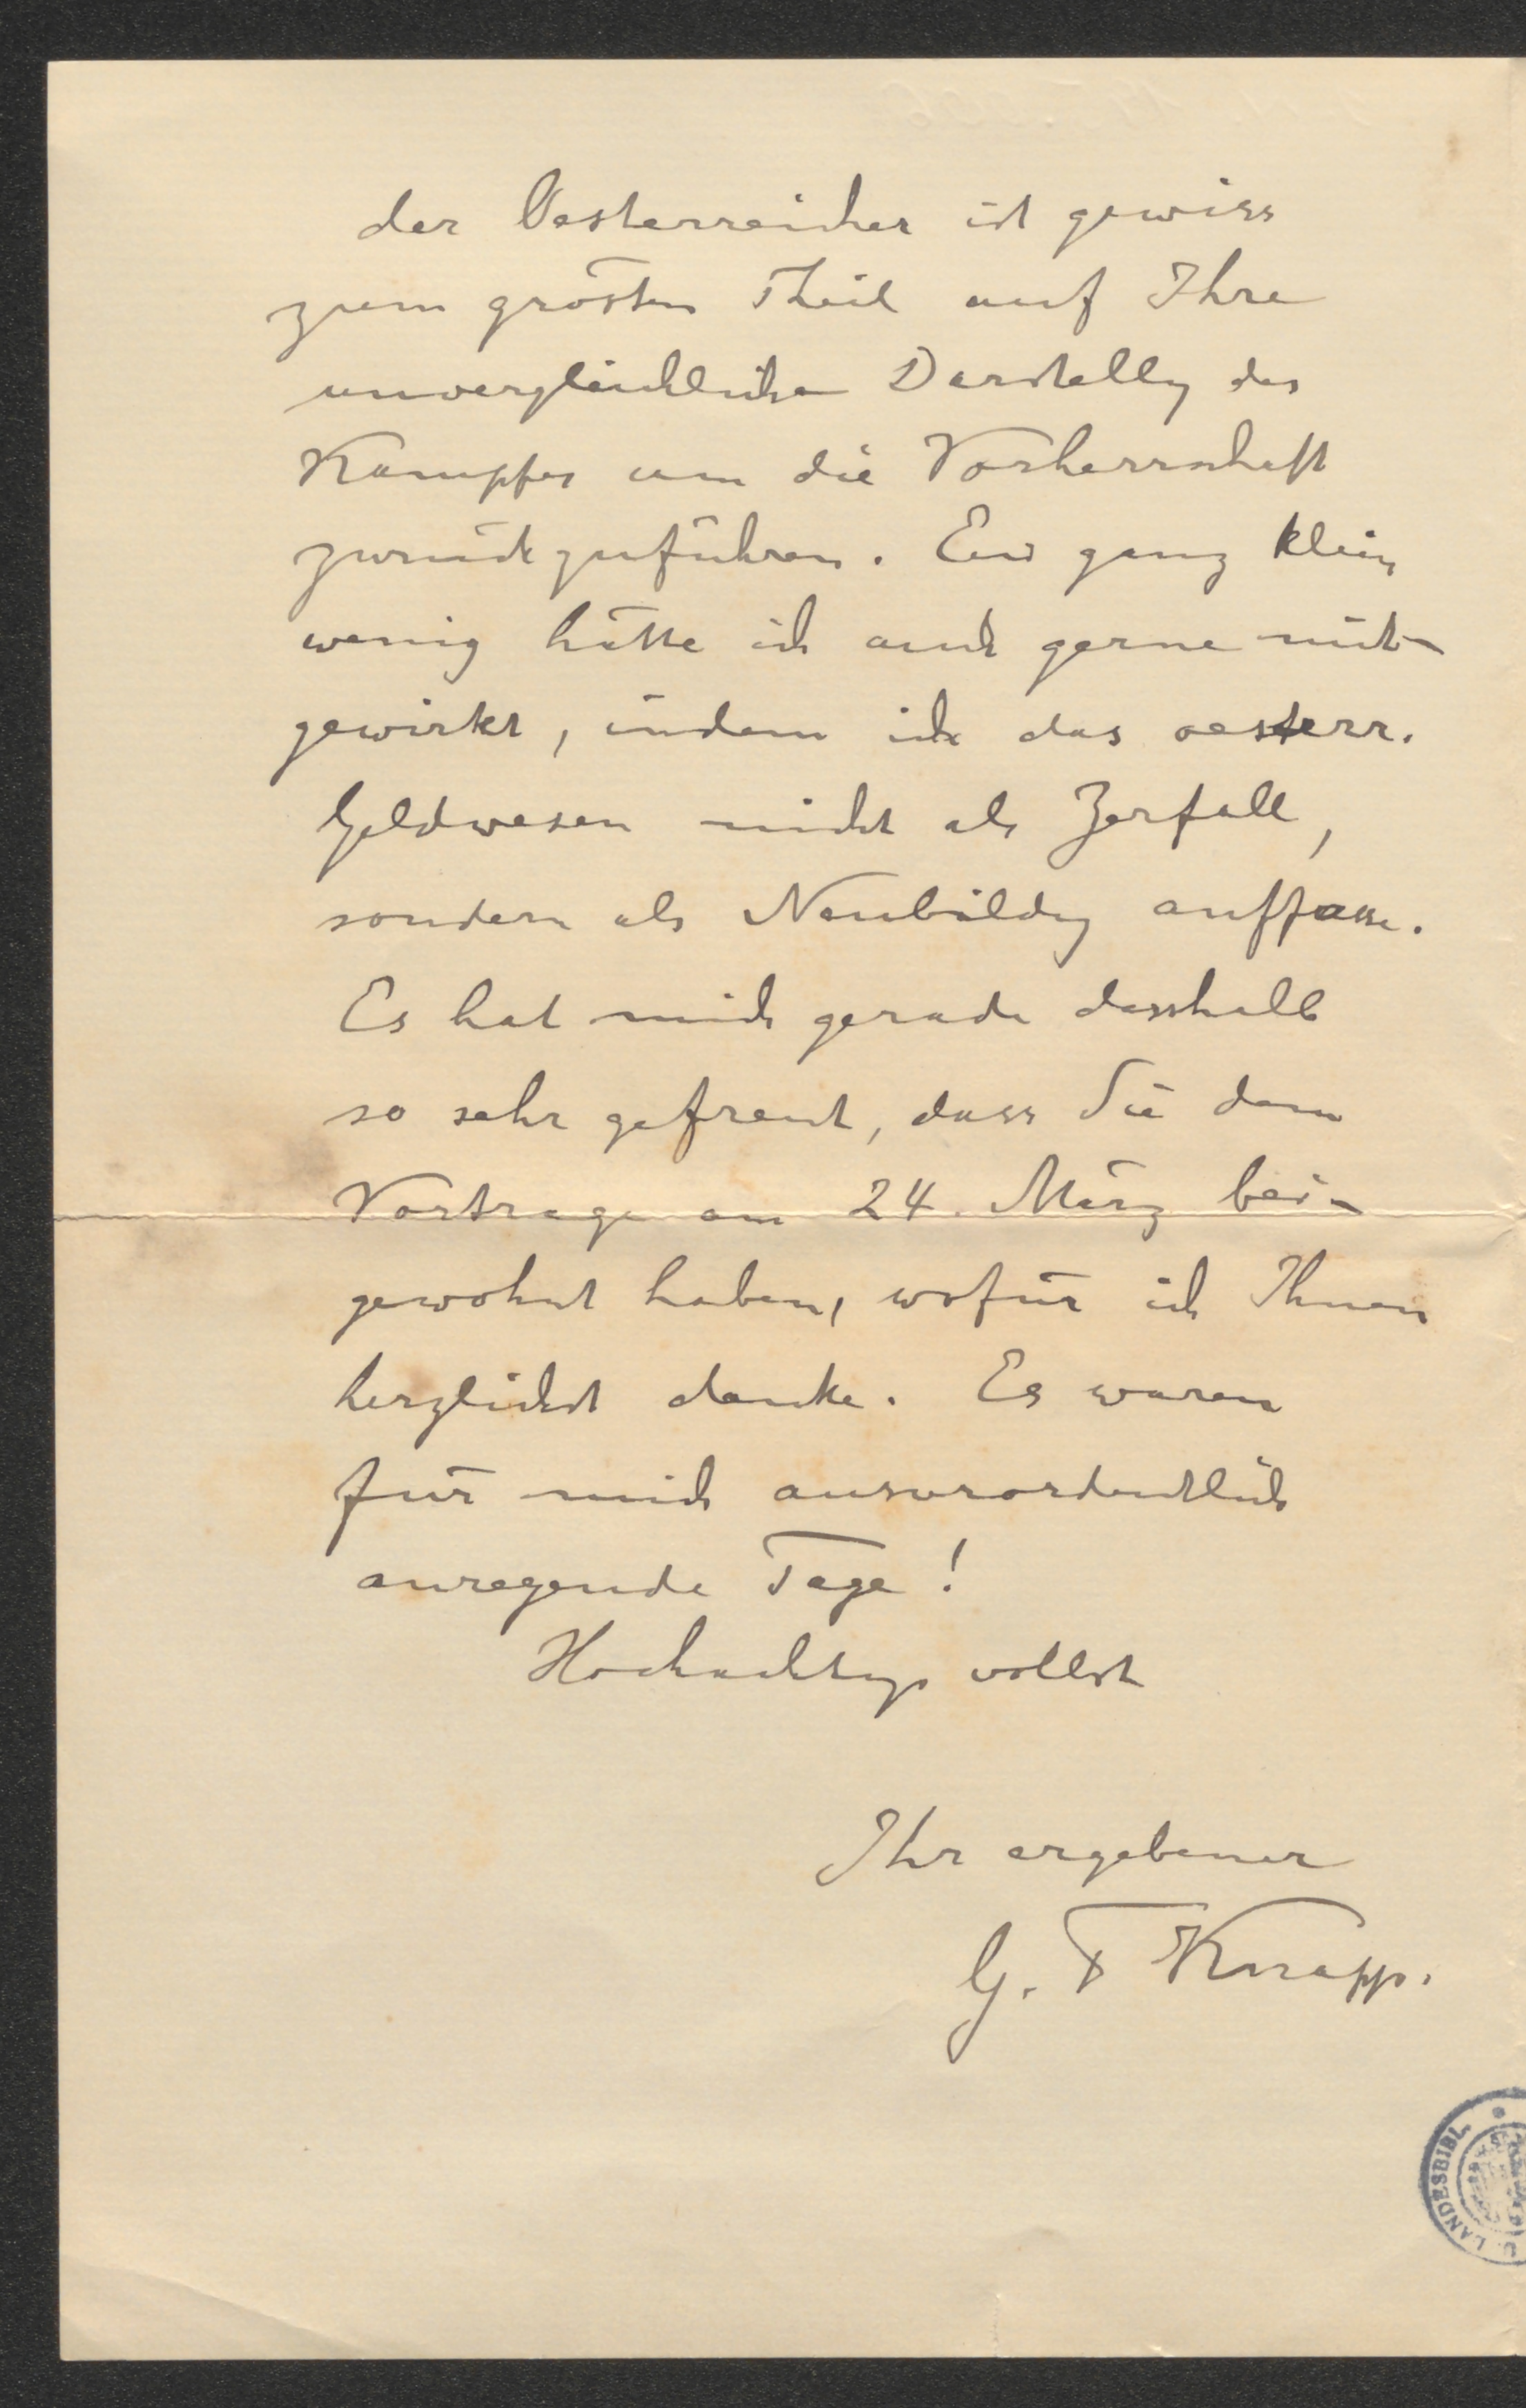 der Oesterreicher ist gewiss
zum grösten Theil auf Ihre
unvergleichliche Darstellg des
Kampfes um die Vorherrschaft
zurückzuführen. Ein ganz klein
wenig hätte ich auch gerne mit-
gewirkt, indem ich das oesterr.
Geldwesen nicht als Zerfall,
sondern als Neubildg auffasse.
Es hat mich gerade desshalb
so sehr gefreut, dass Sie dem
Vortrage am 24. März bei-
gewohnt haben, wofür ich Ihnen
herzlichst danke. Es waren
für mich ausserordentlich
anregende Tage!
Hochachtgsvollst
Ihr ergebener
G. F Knapp.
U. LANDESBIBL.